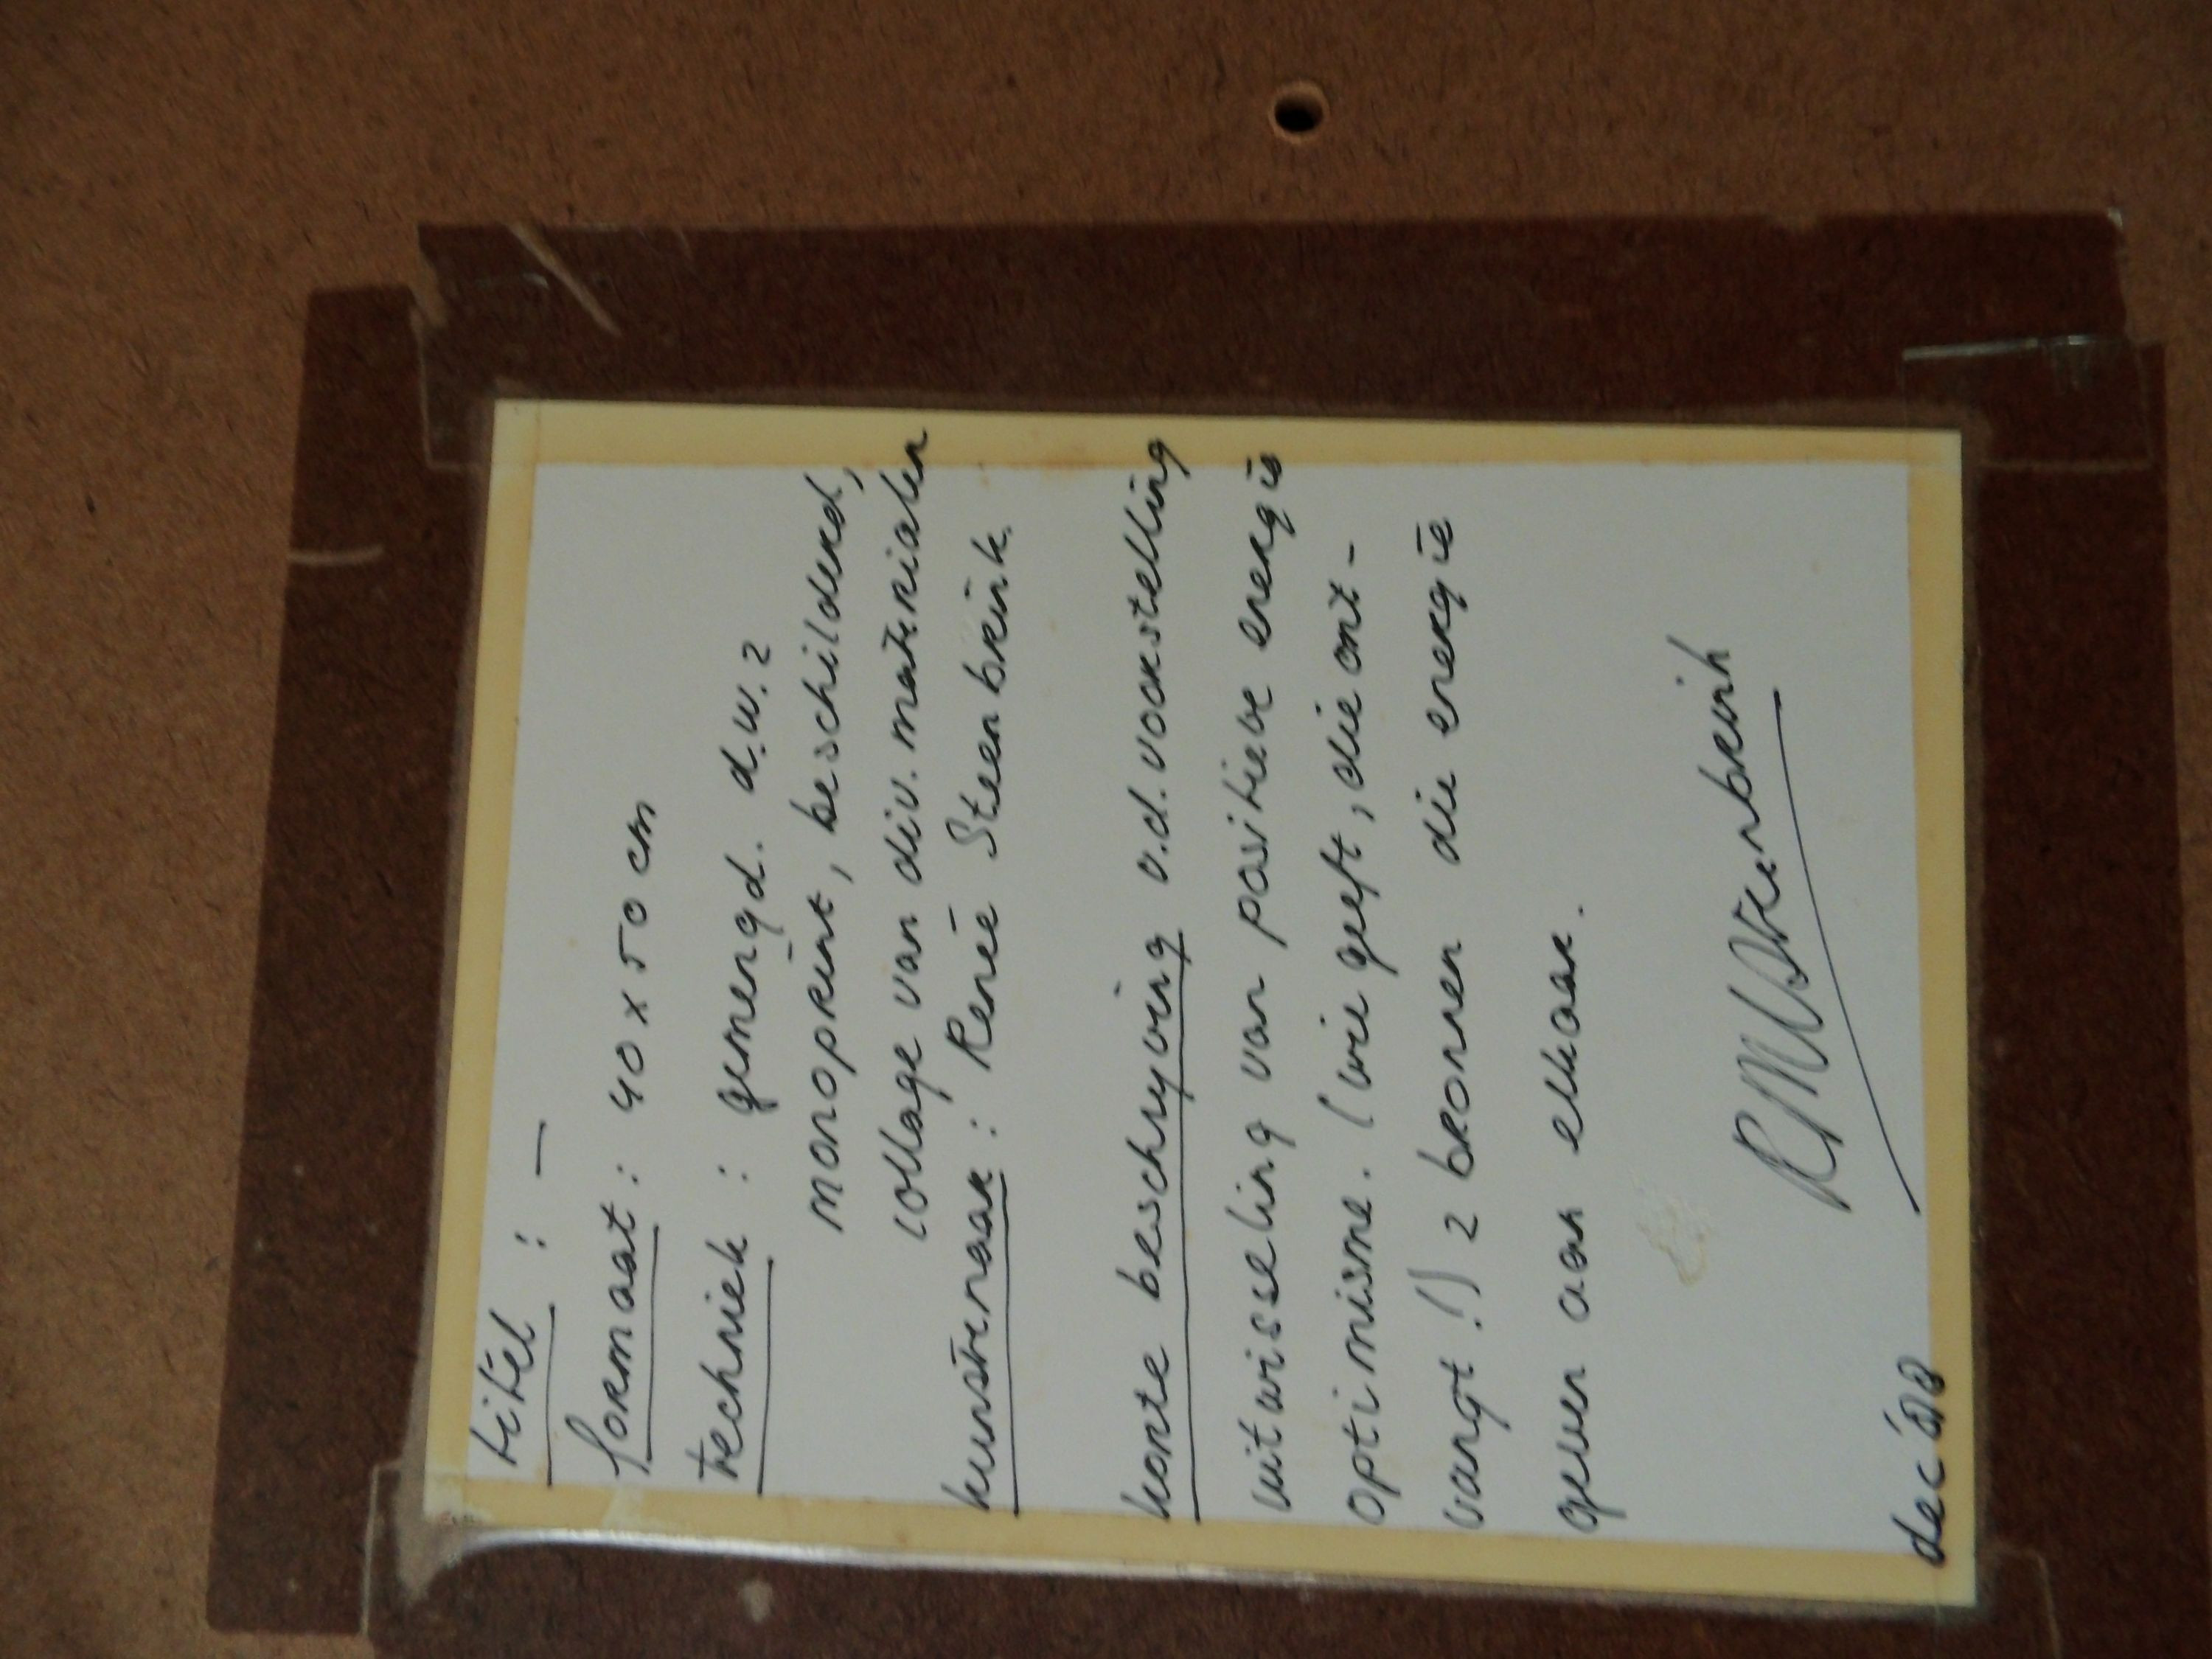 titel : —
formaat : 40 x 50 cm
techniek : gemengd. d.w.z
monoprint, beschilderd,
collage van div. materialen
kunstenaar : Renée Steenbrink.
korte beschrijving v.d. voorstelling
uitwisseling van positieve energie
optimisme. (wie geeft, die ont-
vangt!) 2 bronnen die energie
geven aan elkaar.
RM Steenbrink
dec